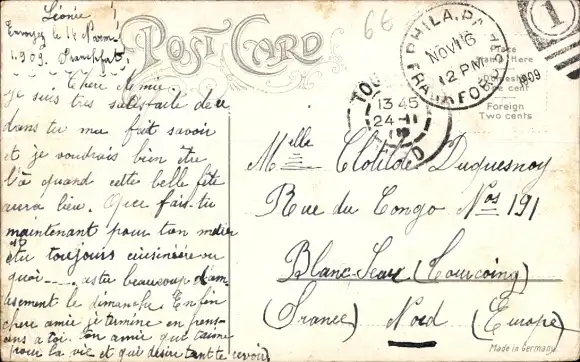 Léonie
Envoyez le 14
1909. Frankfort
POST CARD
66
PHILA. PA.
NOV 16
12 PM
1909
FRANKFORD
1
Place
Here
One cent
Foreign
Two cents
TOU
13 45
24-11
Chère Amie
je suis très satisfaite de ce
dans tu ma fait savoir
et je voudrais bien être
là quand cette belle fête
aura lieu. Que fais tu
maintenant pour ton métier
es tu toujours cuisinière ou
quoi as tu beaucoup d'am-
usement le dimanche. Enfin
chère amie je termine en pens-
ons a toi. ton amie qui t'aime
pour la vie et qui désire tant te revoir
Melle Clotilde Duquesnoy
Rue du Congo Nos 191
Blanc-Seau (Tourcoing)
(France) Nord (Europe)
Made in Germany